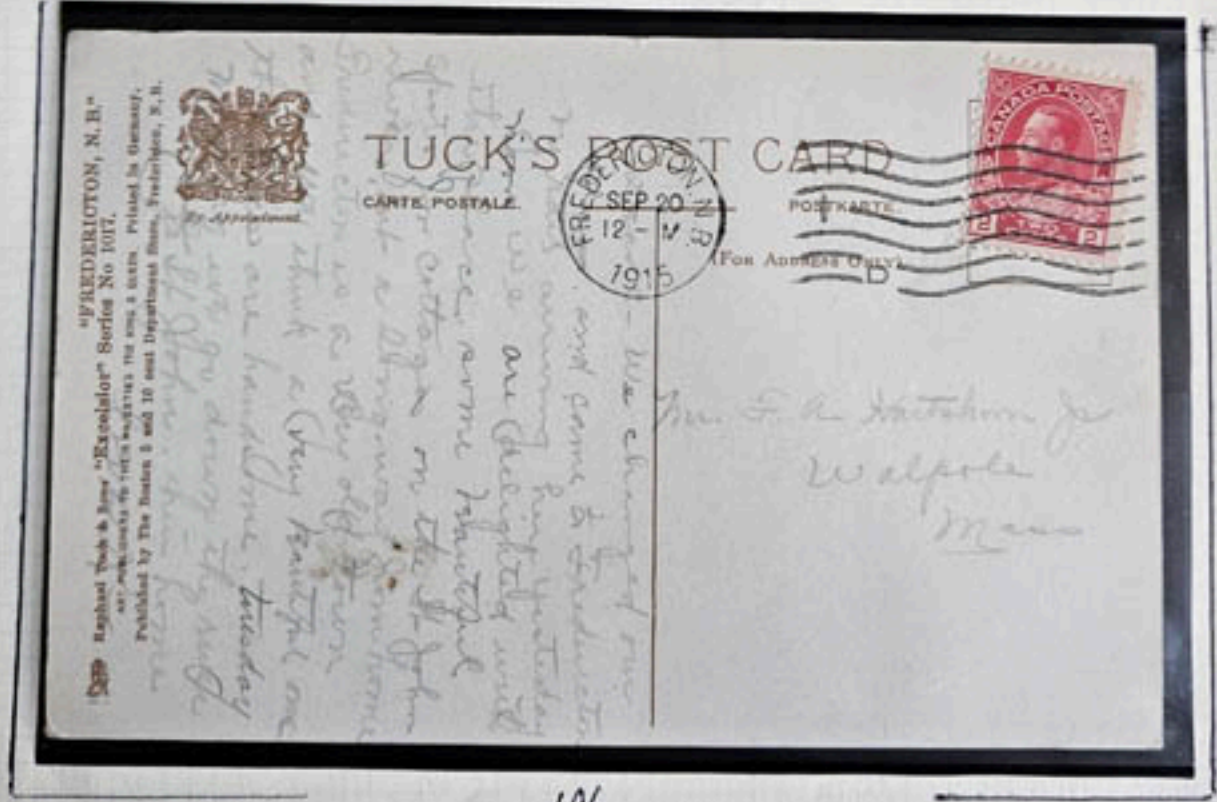 "FREDERICTON, N. B."
Raphael Tuck & Sons' "Excelsior" Series No 1017.
ART PUBLISHERS TO THEIR MAJESTIES THE KING & QUEEN. Printed in Germany.
Published by The Boston 5 and 10 cent Department Store, Fredericton, N.B.
By Appointment.
TUCK'S POST CARD
CARTE POSTALE.
POSTKARTE.
(FOR ADDRESS ONLY)
FREDERICTON N B
SEP 20
12 - M
1915
D
CANADA POSTAGE
2 TWO 2
We changed our
and came to Fredericton
arriving here yesterday
we are delighted with
the place, some beautiful
cottages on the St John
Fredericton is a very old town
and I think a very beautiful one
are handsome. Tuesday
we go down the
St John, then home
Mr. F. A. Hartshorn Jr
Walpole
Mass